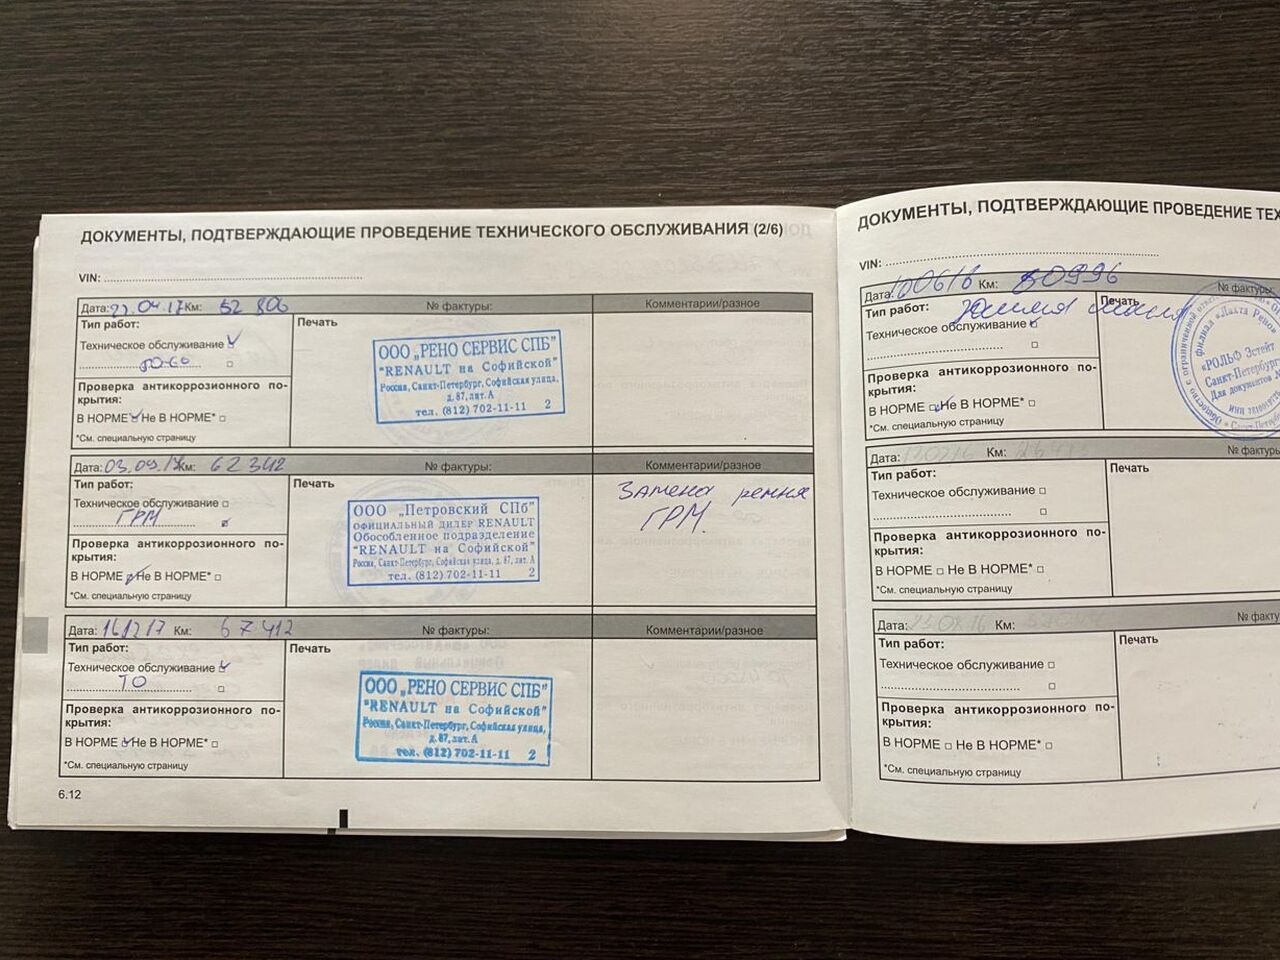 ДОКУМЕНТЫ, ПОДТВЕРЖДАЮЩИЕ ПРОВЕДЕНИЕ ТЕХНИЧЕСКОГО ОБСЛУЖИВАНИЯ (2/6)
VIN:
Дата: 23.04.17 Км: 52 806 № фактуры: Комментарии/разное
Тип работ: Печать
Техническое обслуживание
ТО-60
Проверка антикоррозионного по-
крытия:
В НОРМЕ Не В НОРМЕ*
*См. специальную страницу
ООО „РЕНО СЕРВИС СПБ"
"RENAULT на Софийской"
Россия, Санкт-Петербург, Софийская улица,
д. 87, лит. А
тел. (812) 702-11-11 2
Дата: 03.09.17 Км: 62342 № фактуры: Комментарии/разное
Тип работ: Печать
Техническое обслуживание
ГРМ
Проверка антикоррозионного по-
крытия:
В НОРМЕ Не В НОРМЕ*
*См. специальную страницу
ООО „Петровский СПб"
ОФИЦИАЛЬНЫЙ ДИЛЕР RENAULT
Обособленное подразделение
"RENAULT на Софийской"
Россия, Санкт-Петербург, Софийская улица, д. 87, лит. А
тел. (812) 702-11-11 2
Замена ремня
ГРМ.
Дата: 161217 Км: 67412 № фактуры: Комментарии/разное
Тип работ: Печать
Техническое обслуживание
ТО
Проверка антикоррозионного по-
крытия:
В НОРМЕ Не В НОРМЕ*
*См. специальную страницу
ООО „РЕНО СЕРВИС СПБ"
"RENAULT на Софийской"
Россия, Санкт-Петербург, Софийская улица,
д. 87, лит. А
тел. (812) 702-11-11 2
6.12
ДОКУМЕНТЫ, ПОДТВЕРЖДАЮЩИЕ ПРОВЕДЕНИЕ ТЕХ
VIN:
Дата: 100616 Км: 50996 № фактуры:
Тип работ: Печать
Техническое обслуживание
Проверка антикоррозионного по-
крытия:
В НОРМЕ Не В НОРМЕ*
*См. специальную страницу
филиал «Лахта Рено»
«РОЛЬФ Эстейт
Санкт-Петербург»
Для документов
Дата: Км: № фактуры
Тип работ: Печать
Техническое обслуживание
Проверка антикоррозионного по-
крытия:
В НОРМЕ Не В НОРМЕ*
*См. специальную страницу
Дата: Км: № факту
Тип работ: Печать
Техническое обслуживание
Проверка антикоррозионного по-
крытия:
В НОРМЕ Не В НОРМЕ*
*См. специальную страницу